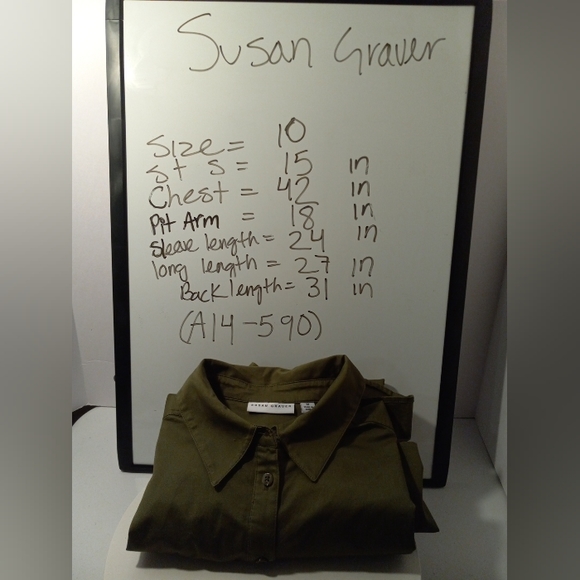 Susan Graver
Size = 10
St S = 15 in
Chest = 42 in
Pit Arm = 18 in
Sleeve length = 24 in
long length = 27 in
Back length = 31 in
(A14-590)
SUSAN GRAVER